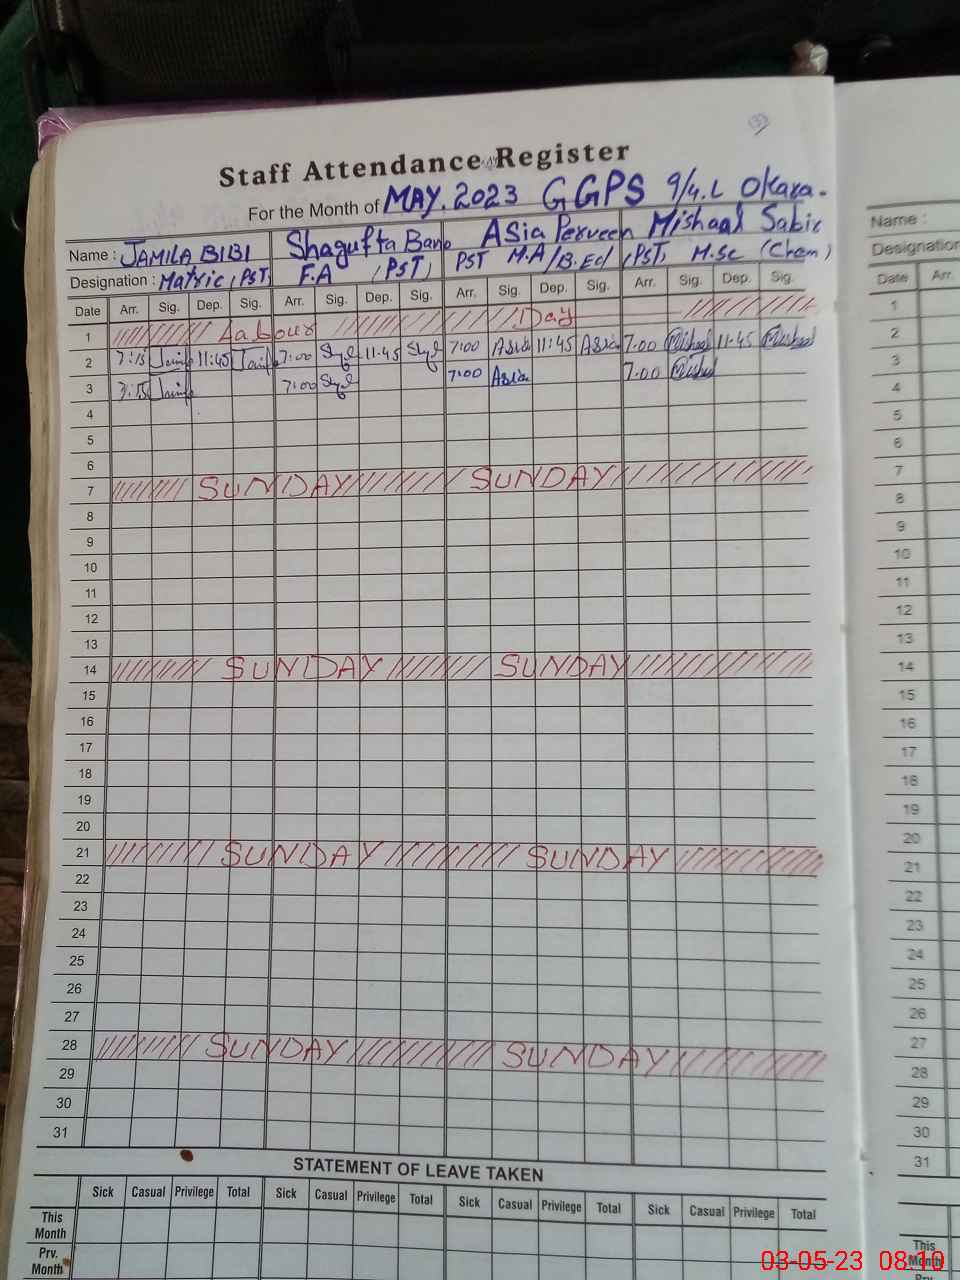 Staff Attendance Register
For the Month of MAY. 2023 GGPS 9/4.L Okara.
Name : JAMILA BIBI Shagufta Bano ASia Perveen Mishaal Sabir
Designation : Matric (PST) F.A (PST) PST M.A/B.Ed (PST) M.Sc (Chem)
Date Arr. Sig. Dep. Sig. Arr. Sig. Dep. Sig. Arr. Sig. Dep. Sig. Arr. Sig. Dep. Sig.
1 Labour Day
2 7:15 11:45 7:00 11:45 7:00 Asia 11:45 Asia 7.00 Mishaal 11.45 Mishaal
3 7:15 7:00 7:00 Asia 7.00
4
5
6
7 SUNDAY SUNDAY
8
9
10
11
12
13
14 SUNDAY SUNDAY
15
16
17
18
19
20
21 SUNDAY SUNDAY
22
23
24
25
26
27
28 SUNDAY SUNDAY
29
30
31
STATEMENT OF LEAVE TAKEN
Sick Casual Privilege Total Sick Casual Privilege Total Sick Casual Privilege Total Sick Casual Privilege Total
This Month
Prv. Month
Name :
Designation
Date Arr.
1
2
3
4
5
6
7
8
9
10
11
12
13
14
15
16
17
18
19
20
21
22
23
24
25
26
27
28
29
30
31
This Month
03-05-23 08:10